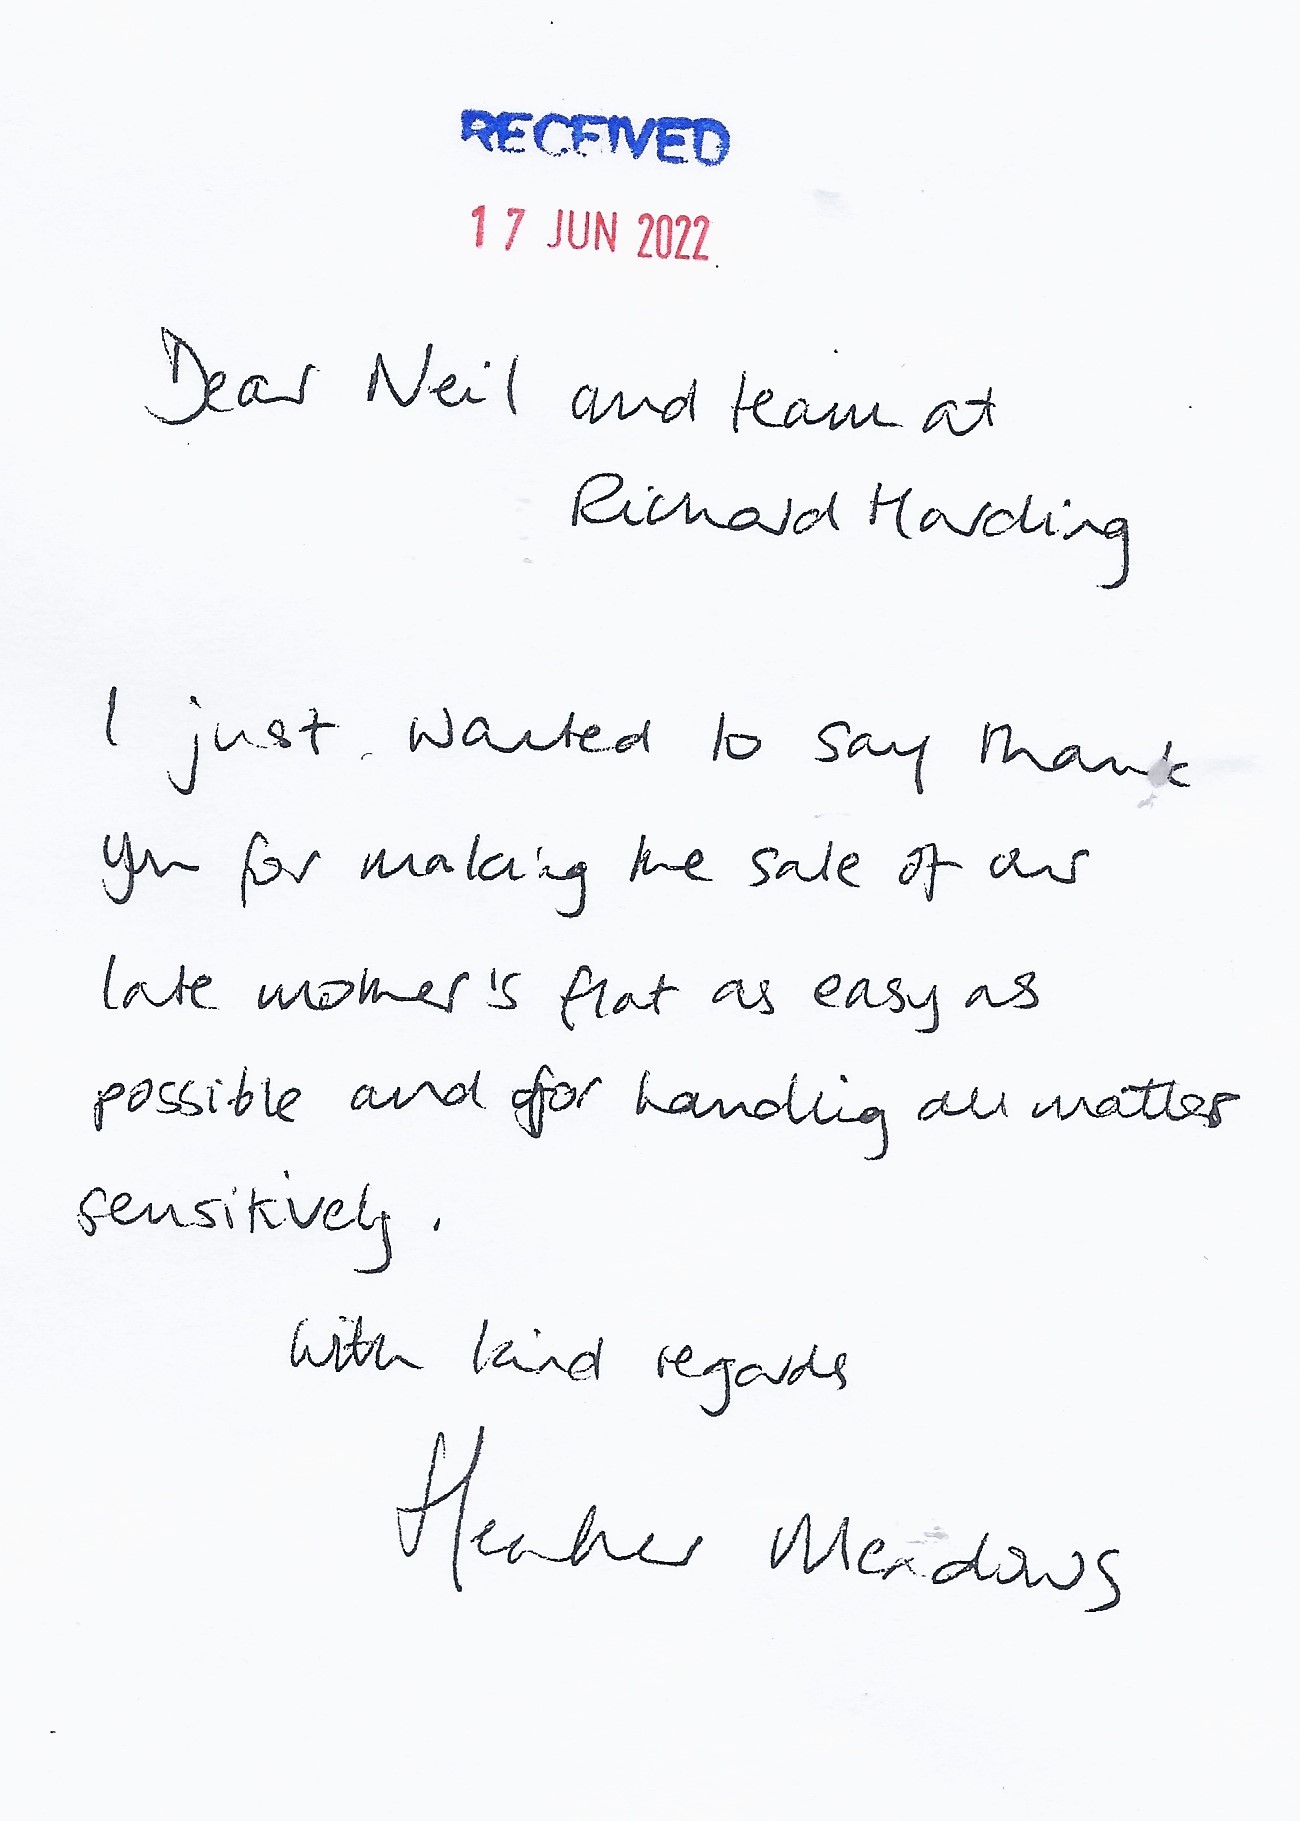 RECEIVED
17 JUN 2022
Dear Neil and team at
Richard Harding
I just wanted to say thank
you for making the sale of our
late mother's flat as easy as
possible and for handling all matters
sensitively.
With kind regards
Heather Meadows